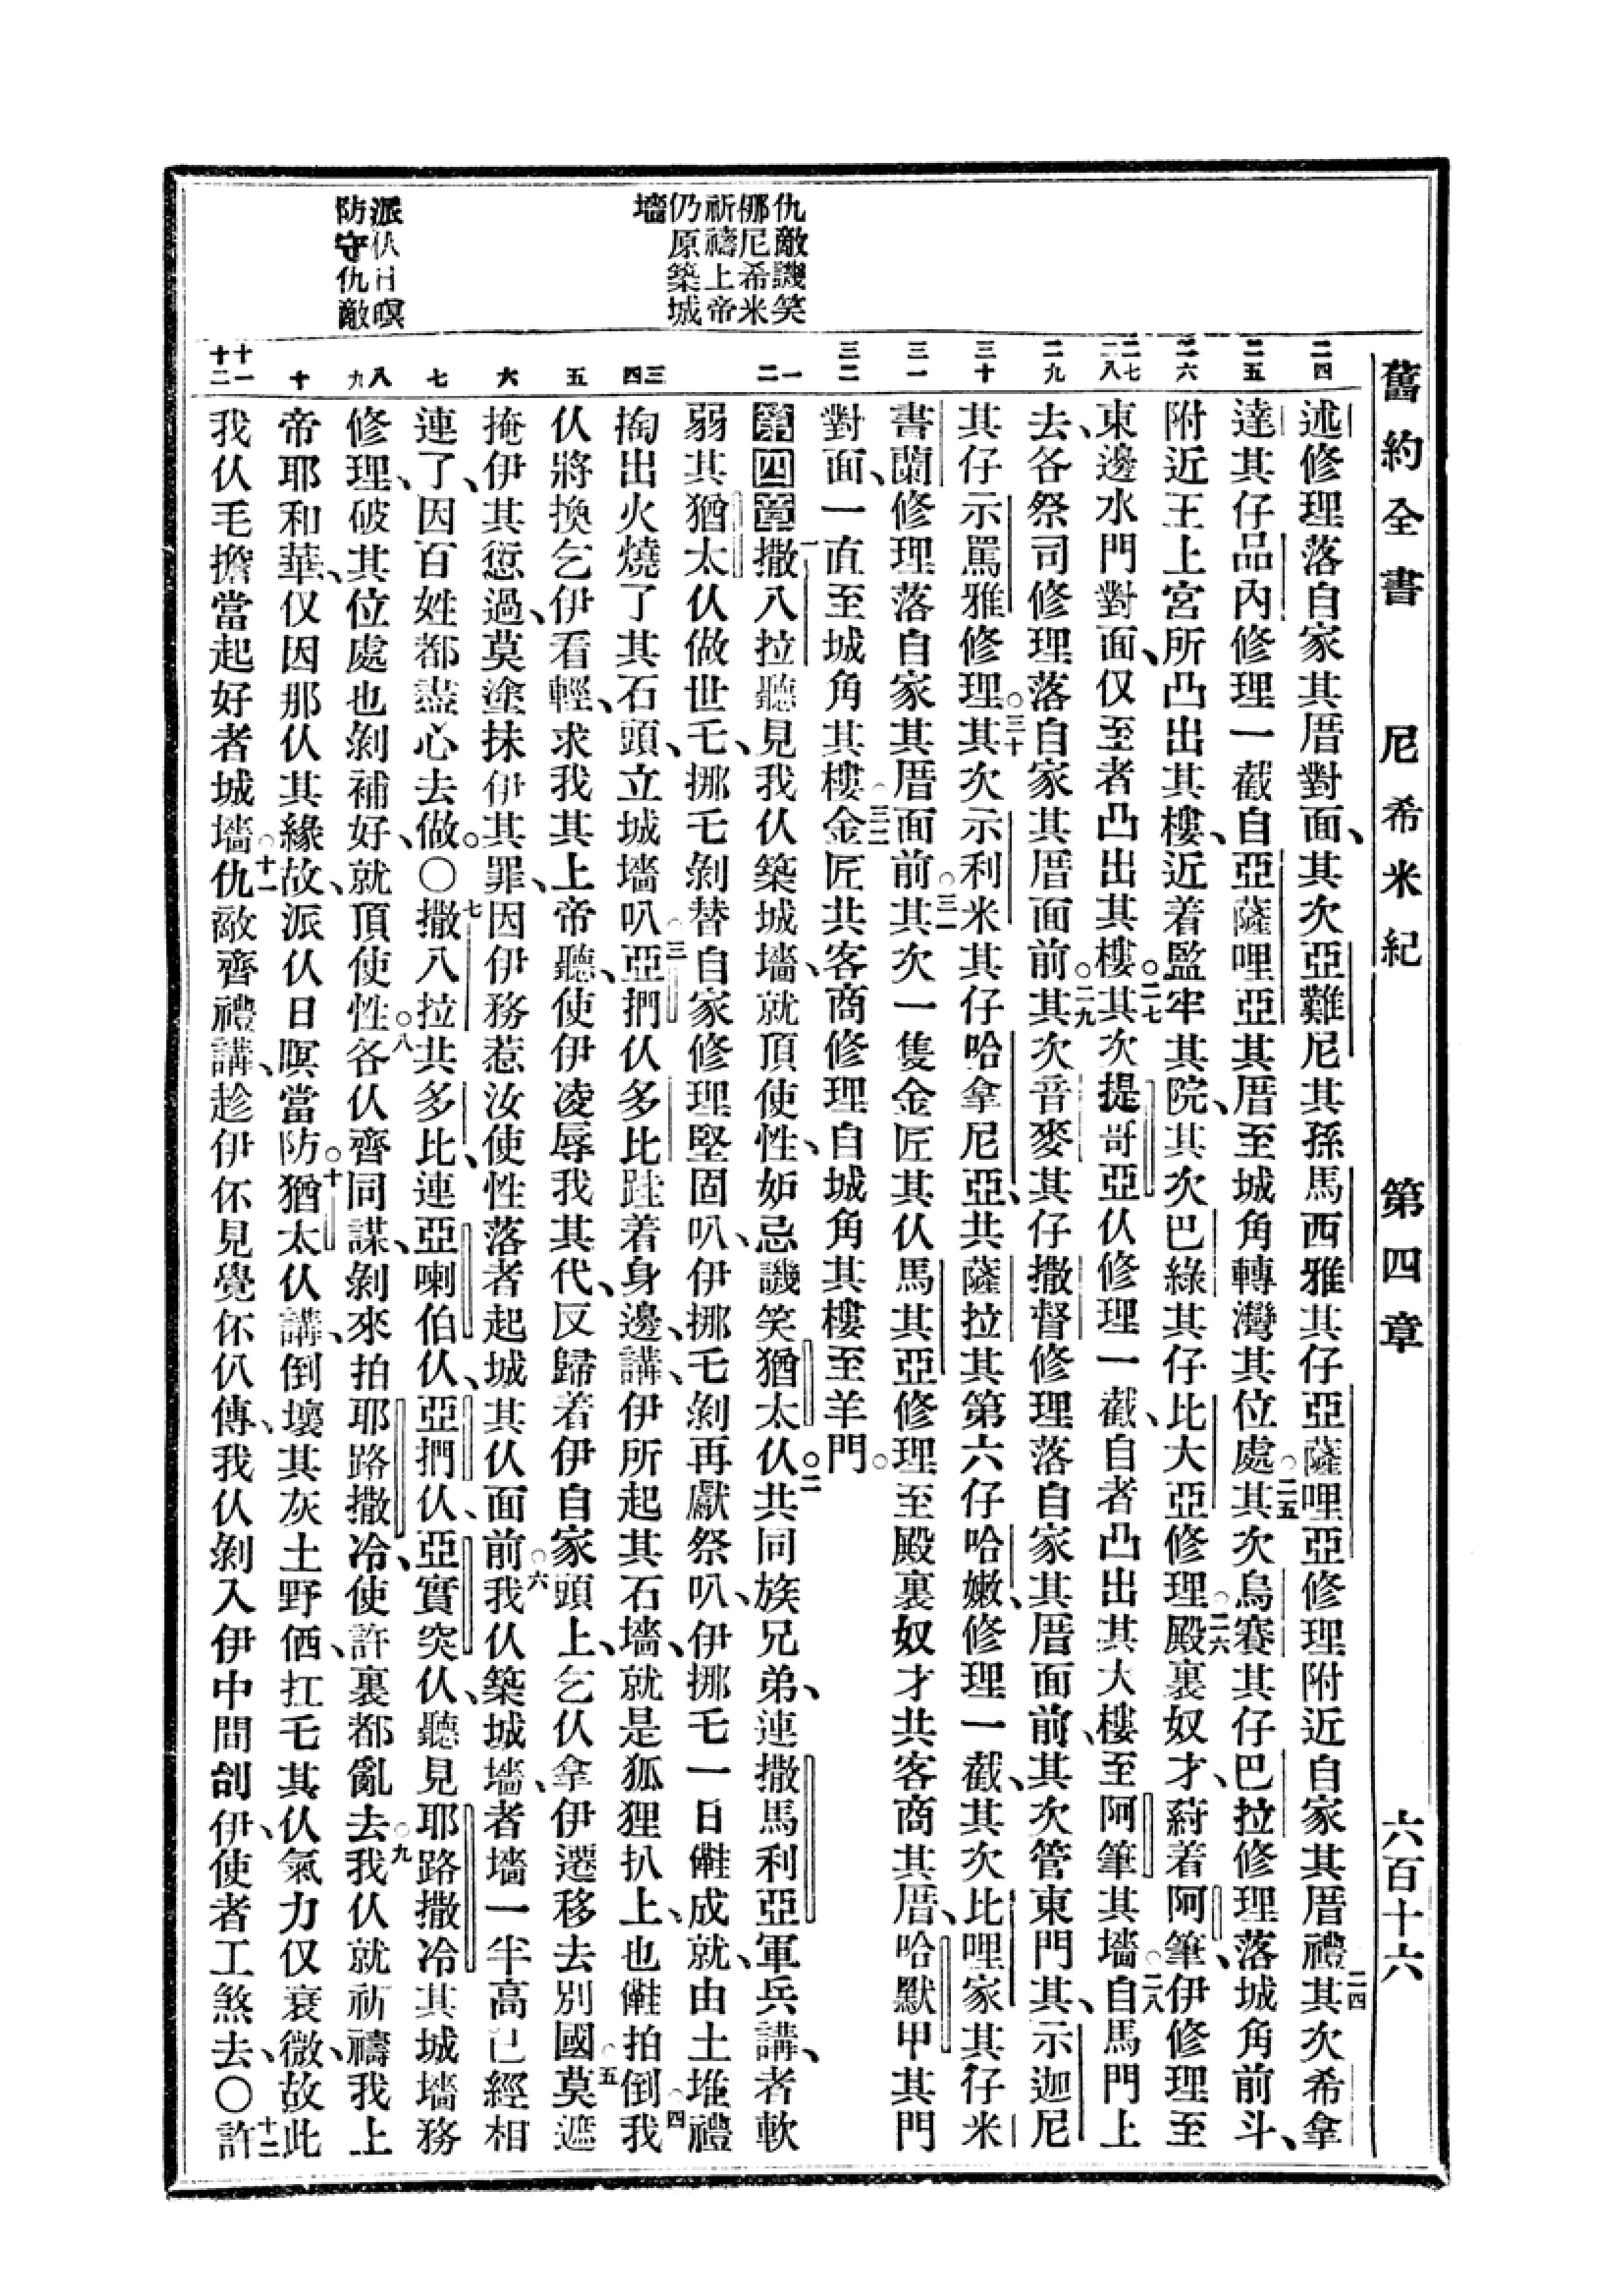 舊約全書 尼希米紀 第四章 六百十六
仇敵譏笑
哪尼希米
祈禱上帝
仍原築城
墻
派伙日暝
防守仇敵
二四 二五 二六 二七 二八 二九 三十 三一 三二 一 二 三 四 五 六 七 八 九 十 十一 十二
述修理落自家其厝對面、其次亞難尼其孫馬西雅其仔亞薩哩亞修理附近自家其厝禮二四其次希拿
達其仔品內修理一截自亞薩哩亞其厝至城角轉灣其位處○二五其次烏賽其仔巴拉修理落城角前斗、
附近王上宮所凸出其樓、近着監牢其院、其次巴綠其仔比大亞修理○二六殿裏奴才、䔷着阿筆、伊修理至
東邊水門對面、仅至者凸出其樓○二七其次提哥亞仈修理一截、自者凸出其大樓至阿筆其墻○二八自馬門上
去、各祭司修理落自家其厝面前○二九其次音麥其仔撒督修理落自家其厝面前、其次管東門其、示迦尼
其仔示罵雅修理○三十其次示利米其仔哈拿尼亞、共薩拉其第六仔哈嫩、修理一截、其次比哩家其仔米
書蘭修理落自家其厝面前○三一其次一隻金匠其仈馬其亞修理至殿裏奴才共客商其厝、哈默甲其門
對面、一直至城角其樓○三二金匠共客商修理自城角其樓至羊門○
第四章一撒八拉聽見我仈築城墻、就頂使性、妒忌譏笑猶太仈○二共同族兄弟、連撒馬利亞軍兵講、者軟
弱其猶太仈做世乇、挪乇剝替自家修理堅固叭、伊挪乇剝再獻祭叭、伊挪乇一日㒰成就、由土堆禮
掏出火燒了其石頭、立城墻叭○三亞捫仈多比跬着身邊、講、伊所起其石墻、就是狐狸扒上、也㒰拍倒○四我
仈將換乞伊看輕、求我其上帝聽、使伊凌辱我其代、反歸着伊自家頭上、乞仈拿伊遷移去別國○五莫遮
掩伊其愆過、莫塗抹伊其罪、因伊務惹汝使性落者起城其仈面前○六我仈築城墻、者墻一半高已經相
連了、因百姓都盡心去做。〇七撒八拉共多比、連亞喇伯仈、亞捫仈、亞實突仈、聽見耶路撒冷其城墻務
修理、破其位處也剝補好、就頂使性○八各仈齊同謀、剝來拍耶路撒冷、使許裏都亂去○九我仈就祈禱我上
帝耶和華、仅因那仈其緣故、派仈日暝當防○十猶太仈講、倒壞其灰土野価、扛乇其仈氣力仅衰微、故此
我仈毛擔當起好者城墻○十一仇敵齊禮講、趁伊伓見覺伓仈傳、我仈剝入伊中間刣伊、使者工煞去、〇十二許